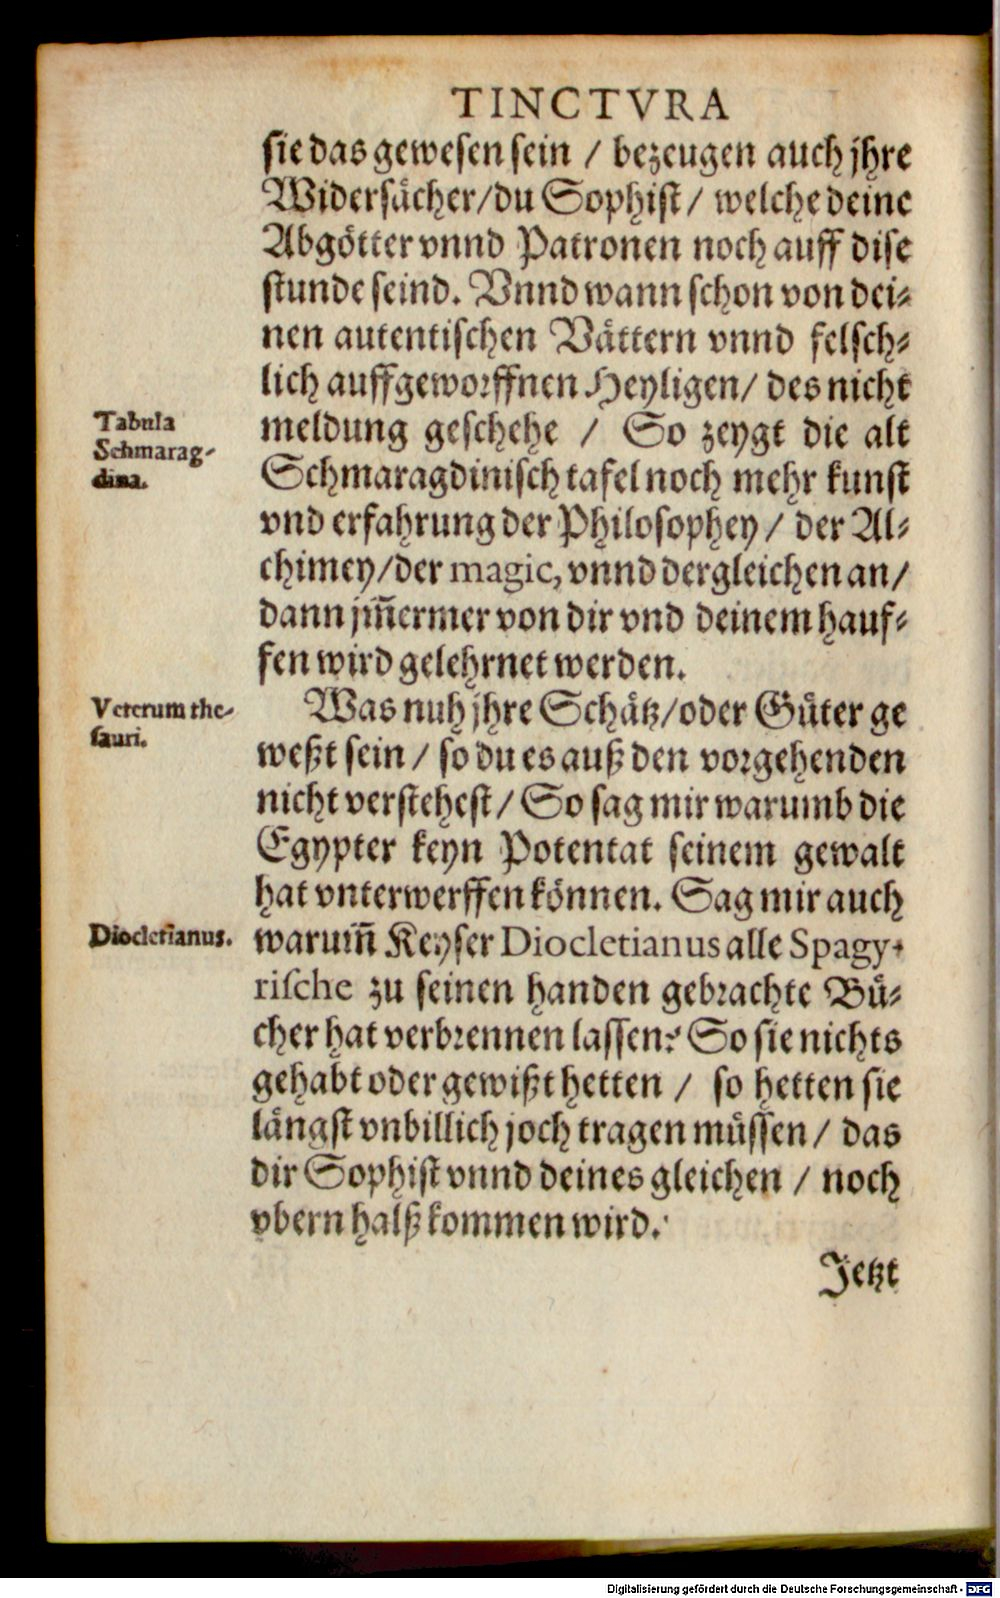 TINCTVRA
sie das gewesen sein / bezeugen auch jhre
Widersächer/du Sophist / welche deine
Abgötter vnnd Patronen noch auff dise
stunde seind. Vnnd wann schon von dei⸗
nen autentischen Vättern vnnd felsch⸗
lich auffgeworffnen Heyligen / des nicht
Tabula
Schmarag⸗
dina.
meldung geschehe / So zeygt die alt
Schmaragdinisch tafel noch mehr kunst
vnd erfahrung der Philosophey / der Al⸗
chimey/der magic, vnnd dergleichen an /
dann jm̄ermer von dir vnd deinem hauf⸗
fen wird gelehrnet werden.
Veterum the⸗
sauri.
Was nuh jhre Schätz/oder Güter ge
weßt sein / so du es auß den vorgehenden
nicht verstehest / So sag mir warumb die
Egypter keyn Potentat seinem gewalt
hat vnterwerffen können. Sag mir auch
Diocletianus.
warum̄ Keyser Diocletianus alle Spagy⸗
rische zu seinen handen gebrachte Bü⸗
cher hat verbrennen lassen? So sie nichts
gehabt oder gewißt hetten / so hetten sie
längst vnbillich joch tragen müssen / das
dir Sophist vnnd deines gleichen / noch
vbern halß kommen wird.
Jetzt
Digitalisierung gefördert durch die Deutsche Forschungsgemeinschaft - DFG